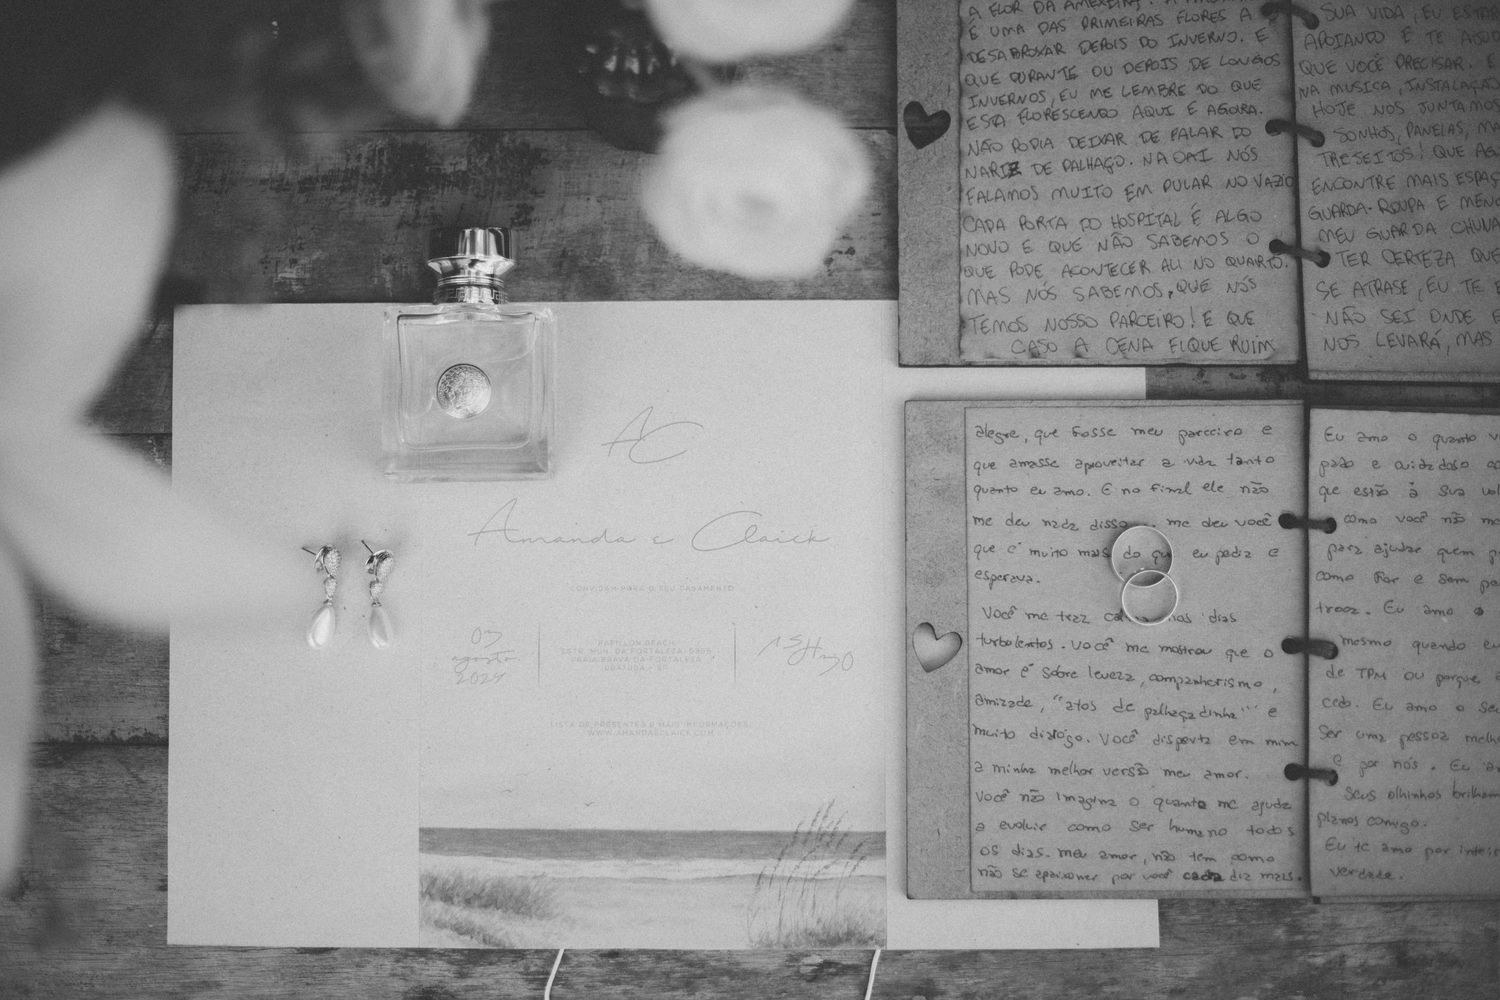 AC
Amanda e Claick
CONVIDAM PARA O SEU CASAMENTO
03
agosto
2024
PAPILLON BEACH
ESTR. MUN. DA FORTALEZA
PRAIA BRAVA DA FORTALEZA
UBATUBA - SP
15H30
LISTA DE PRESENTES E MAIS INFORMAÇÕES
WWW.AMANDAECLAICK.COM
A FLOR DA AMEIXEIRA
É UMA DAS PRIMEIRAS FLORES A
DESABROXAR DEPOIS DO INVERNO. E
QUE DURANTE OU DEPOIS DE LONGOS
INVERNOS, EU ME LEMBRE DO QUE
ESTÁ FLORESCENDO AQUI E AGORA.
NÃO PODIA DEIXAR DE FALAR DO
NARIZ DE PALHAÇO. NA OAI NÓS
FALAMOS MUITO EM PULAR NO VAZIO
CADA PORTA DO HOSPITAL É ALGO
NOVO E QUE NÃO SABEMOS O
QUE PODE ACONTECER ALI NO QUARTO.
MAS NÓS SABEMOS, QUE NÓS
TEMOS NOSSO PARCEIRO! E QUE
CASO A CENA FIQUE RUIM
SUA VIDA, EU ESTAR
APOIANDO E TE AJUD
QUE VOCÊ PRECISAR. E
NA MUSICA, INSTALAÇÃO
HOJE NOS JUNTAMOS
SONHOS, PANELAS, MA
TRESEITOS! QUE AG
ENCONTRE MAIS ESPAÇ
GUARDA-ROUPA E MENO
MEU GUARDA CHUVA
TER CERTEZA QUE
SE ATRASE, EU TE E
NÃO SEI ONDE E
NOS LEVARÁ, MAS
alegre, que fosse meu parceiro e
que amasse aproveitar a vida tanto
quanto eu amo. E no final ele não
me deu nada disso. me deu você
que é muito mais do que eu pedia e
esperava.
Você me traz nos dias
turbolentos. Você me mostrou que o
amor é sobre leveza, companherismo,
amizade, "atos de palhaçadinha" e
muito diálogo. Você disperta em mim
a minha melhor versão meu amor.
Você não imagina o quanto me ajuda
a evoluir como ser humano todos
os dias. meu amor, não tem como
não se apaixonar por você cada dia mais.
Eu amo o quanto v
pado e cuidadoso
que estão à sua vol
como você não me
para ajudar quem p
como for e sem pe
troca. Eu amo o
mesmo quando eu
de TPM ou porque
cedo. Eu amo o seu
ser uma pessoa melho
e por nós. Eu a
seus olhinhos brilham
planos comigo.
Eu te amo por inteir
verdade.